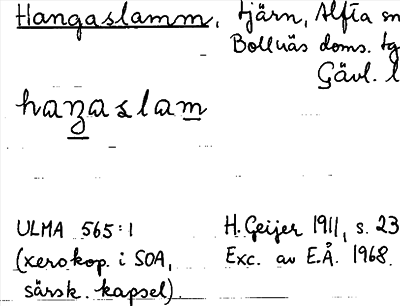 Hangaslamm, tjärn, Alfta sn
Bollnäs doms. tg
Gävl. l
haŋaslam
ULMA 565:1
(xerokop. i SOA,
särsk. kapsel)
H. Geijer 1911, s. 23
Exc. av E.Å. 1968.